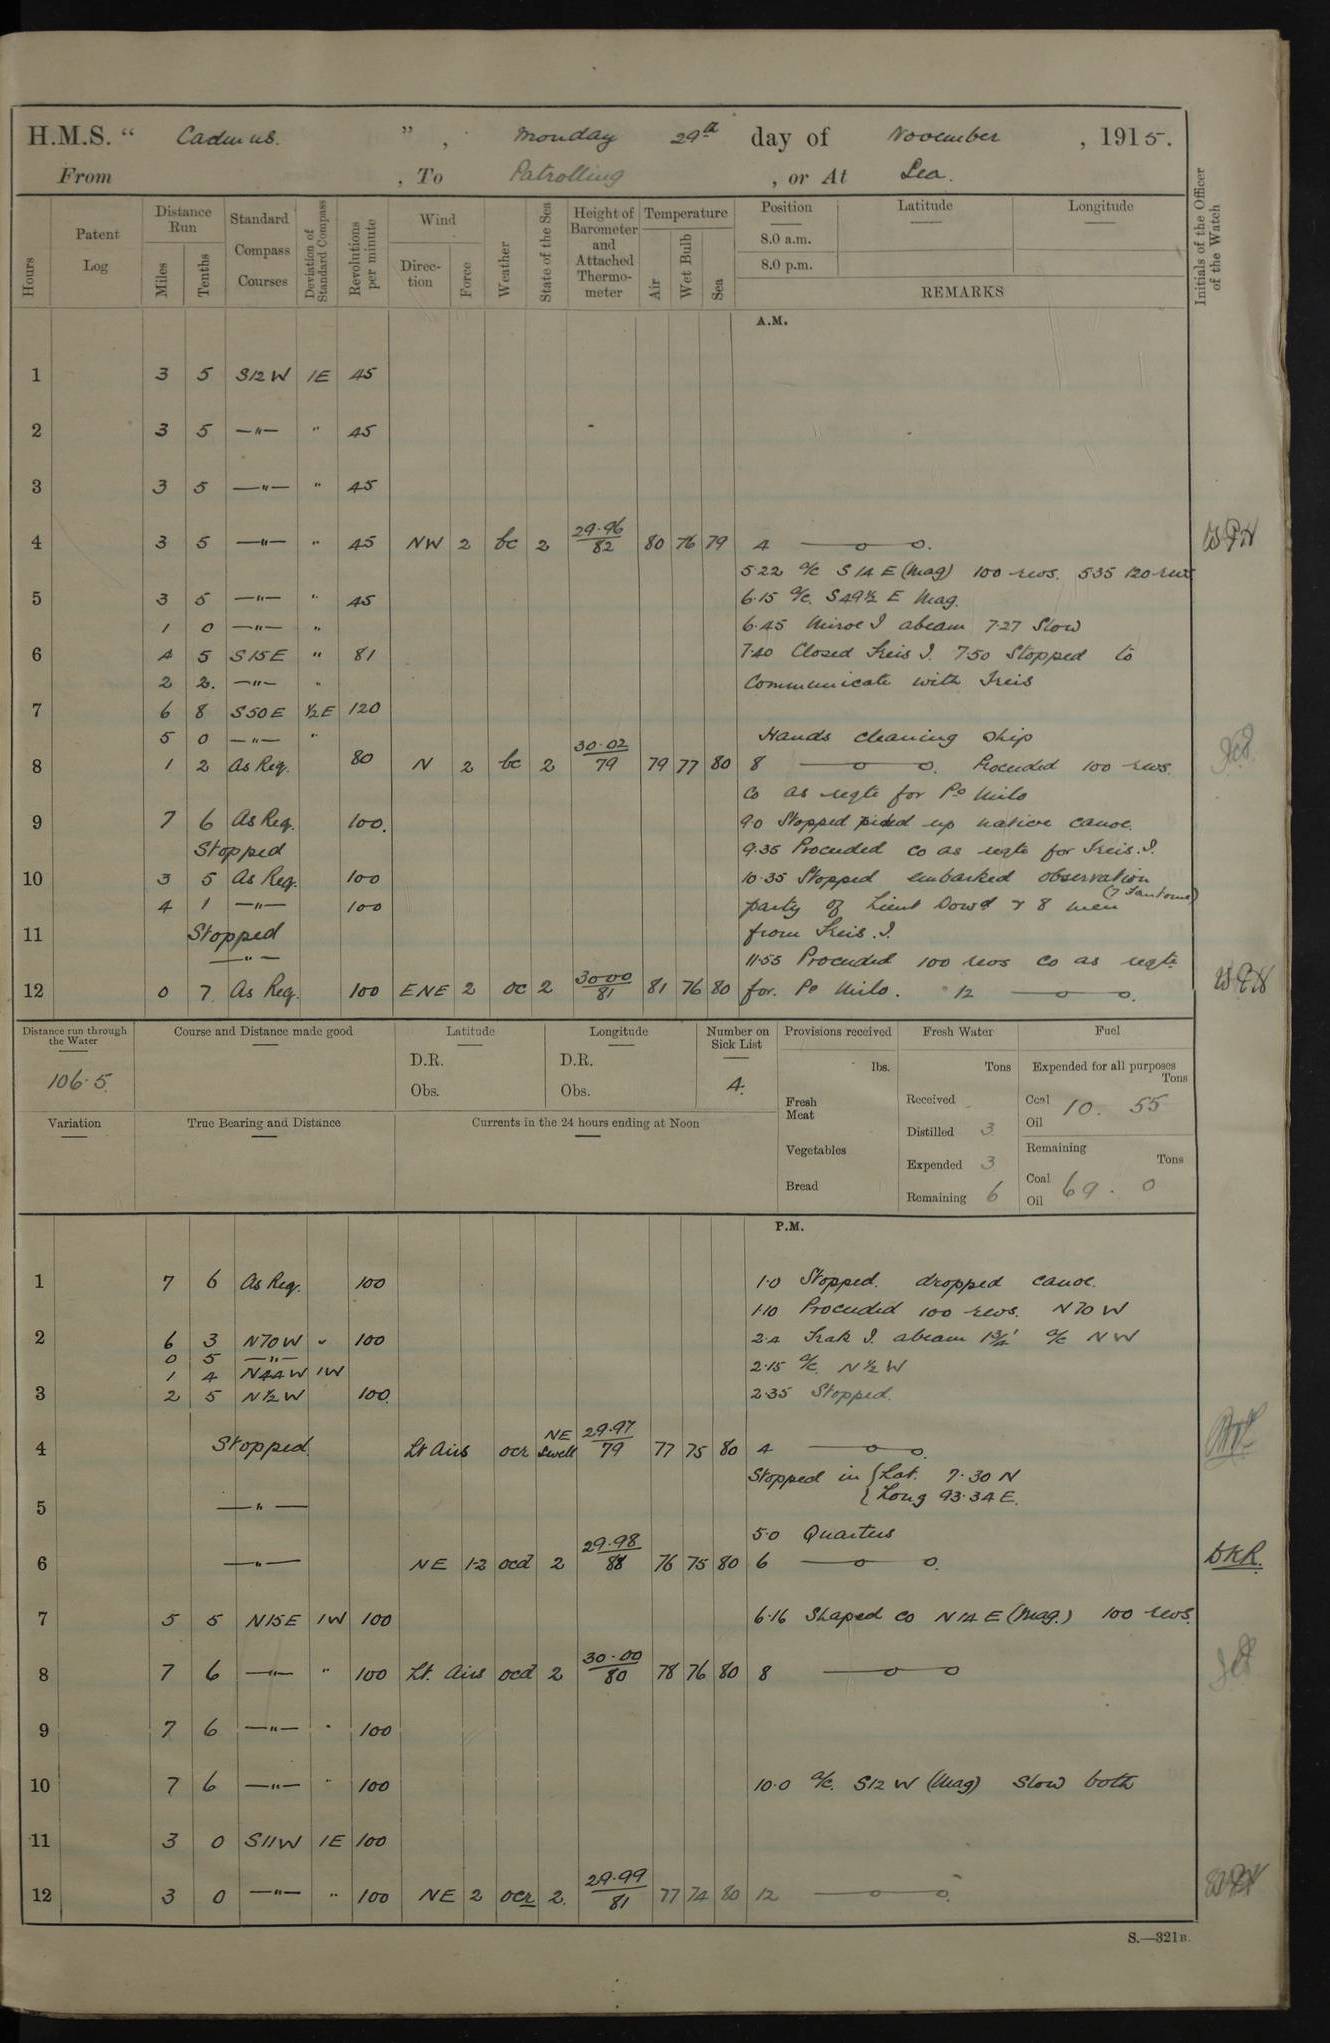 H.M.S. “ Cadmus. ” , Monday 29th day of November , 1915.
From , To Patrolling , or At Sea.
Hours Patent Log Distance Run Miles Tenths Standard Compass Courses Deviation of Standard Compass Revolutions per minute Wind Direction Force Weather State of the Sea Height of Barometer and Attached Thermometer Temperature Air Wet Bulb Sea Position 8.0 a.m. 8.0 p.m. Latitude Longitude REMARKS Initials of the Officer of the Watch
A.M.
1 3 5 S12W 1E 45
2 3 5 —"— " 45
3 3 5 —"— " 45
4 3 5 —"— " 45 NW 2 bc 2 29.96/82 80 76 79 4 —o—o.
5.22 a/c S14E (Mag) 100 revs. 5.35 120 revs
5 3 5 —"— " 45 6.15 a/c. S49½ E Mag.
1 0 —"— " 6.45 Miroe I abeam 7.27 Slow
6 4 5 S15E " 81 7.40 Closed Treis I. 7.50 Stopped to
2 2. —"— " Communicate with Treis
7 6 8 S50E ½E 120
5 0 —"— " Hands cleaning ship
8 1 2 As Req. 80 N 2 bc 2 30.02/79 79 77 80 8 —o—o. Proceeded 100 revs.
Co as reqte for Po Milo
9 7 6 As Req. 100. 9.0 Stopped picked up native canoe.
Stopped 9.35 Proceeded co as reqte for Treis. I.
10 3 5 As Req. 100 10.35 Stopped embarked observation
4 1 —"— 100 party of Lieut Dowd & 8 men (7 Fantome)
11 Stopped from Treis. I.
—"— 11.55 Proceeded 100 revs co as reqte
12 0 7 As Req. 100 ENE 2 oc 2 30.00/81 81 76 80 for. Po Milo. 12 —o—o.
Distance run through the Water Course and Distance made good Latitude Longitude Number on Sick List Provisions received Fresh Water Fuel
106.5. D.R. D.R. lbs. Tons Expended for all purposes Tons
Obs. Obs. 4. Fresh Meat Received Coal Oil 10. 55
Variation True Bearing and Distance Currents in the 24 hours ending at Noon Distilled 3
Vegetables Expended 3 Remaining Tons
Bread Remaining 6 Coal Oil 69. 0
P.M.
1 7 6 As Req. 100 1.0 Stopped. dropped canoe.
1.10 Proceeded 100 revs. N70W
2 6 3 N70W " 100 2.4 Trak I. abeam 1¾' a/c NW
0 5 —"—
1 4 N44W 1W 2.15 a/c. N½W
3 2 5 N½W 100. 2.35 Stopped.
4 Stopped Lt Airs ocr NE Swell 29.97/79 77 75 80 4 —o—o.
Stopped in { Lat. 7.30 N
5 —"— { Long 93.34E.
5.0 Quarters
6 —"— NE 1-2 ocd 2 29.98/88 76 75 80 6 —o—o. DKR.
7 5 5 N15E 1W 100 6.16 Shaped co N14E (Mag.) 100 revs.
8 7 6 —"— " 100 Lt. Airs ocd 2 30.00/80 78 76 80 8 —o—o
9 7 6 —"— " 100
10 7 6 —"— " 100 10.0 a/c. S12W (Mag) Slow both
11 3 0 S11W 1E 100
12 3 0 —"— " 100 NE 2 ocr 2. 29.99/81 77 74 80 12 —o—o.
S.—321B.